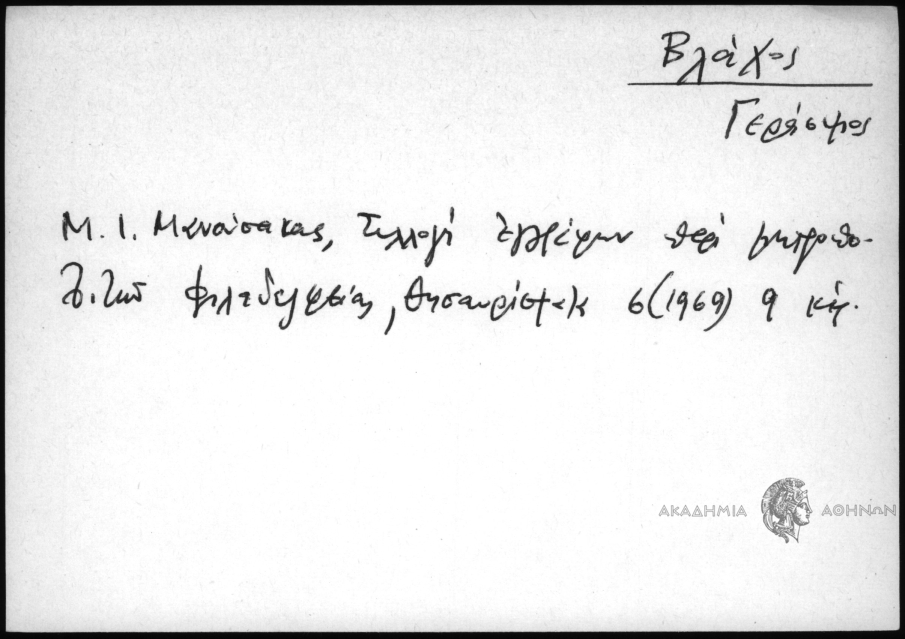 Βλάχος
Γεράσιμος
Μ. Ι. Μανούσακας, Συλλογή ἐγγράφων περί μητροπο-
λιτῶν Φιλαδελφείας, Θησαυρίσματα 6 (1969) 9 κἑ.
ΑΚΑΔΗΜΙΑ ΑΘΗΝΩΝ